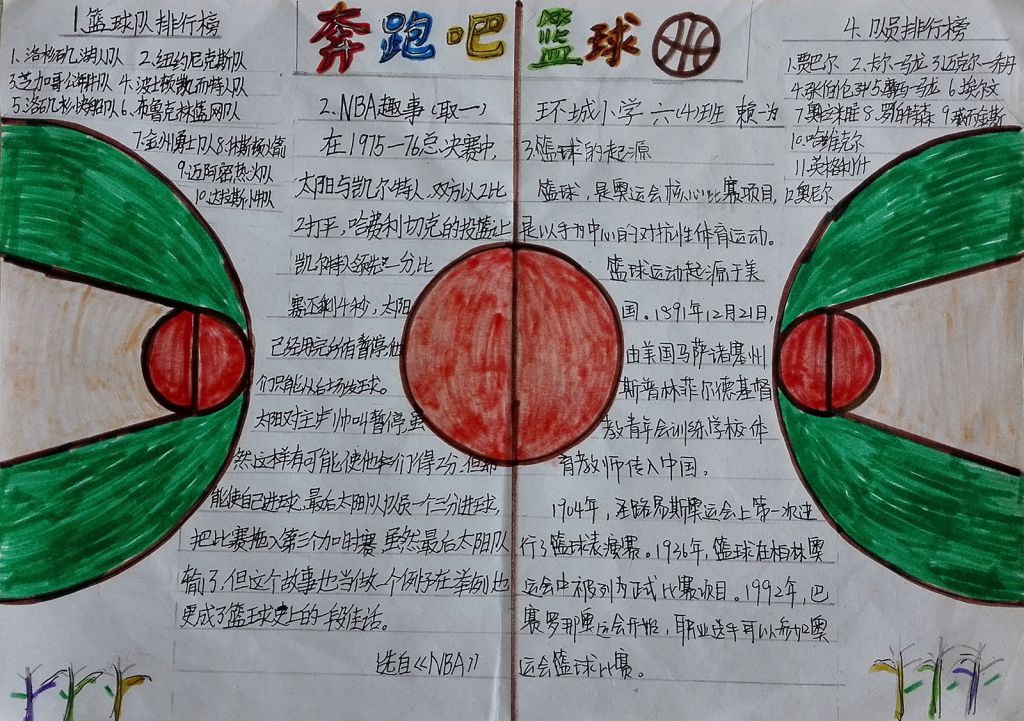 奔跑吧篮球
1.篮球队排行榜
1.洛杉矶湖人队 2.纽约尼克斯队
3.芝加哥公牛队 4.波士顿凯而特人队
5.洛杉矶快船队 6.布鲁克林篮网队
7.金州勇士队 8.休斯顿火箭
9.迈阿密热火队
10.达拉斯小牛队
2.NBA趣事(取一)
在1975—76总决赛中,
太阳与凯尔特人,双方以2比
2打平,哈费利切克的投篮让
凯尔特人领先一分,比
赛还剩4秒,太阳
已经用完所有暂停,他
们只能从后场发球。
太阳对主帅叫暂停,虽
然这样有可能使他们得2分,但
能使自己进球,最后太阳队队员一个三分进球,
把比赛拖入第三个加时赛 虽然最后太阳队
输了,但这个故事也当做一个例子在举例也
更成了篮球史上的一段佳话。
选自《NBA》
环城小学 六(4)班 赖一为
3.篮球的起源
篮球,是奥运会核心比赛项目,
是以手为中心的对抗性体育运动。
篮球运动起源于美
国。1891年12月21日,
由美国马萨诸塞州
斯普林菲尔德基督
教青年会训练学校体
育教师传入中国。
1904年,圣路易斯奥运会上第一次进
行了篮球表演赛。1936年,篮球在柏林奥
运会中被列为正式比赛项目。1992年,巴
赛罗那奥运会开始,职业选手可以参加奥
运会篮球比赛。
4.队员排行榜
1.贾巴尔 2.卡尔-马龙 3.迈克尔-乔丹
4.张伯伦 5.赛马龙 6.埃尔文
7.奥拉朱旺 8.罗伯特森
10.哈维克尔
11.英格利什
12.奥尼尔